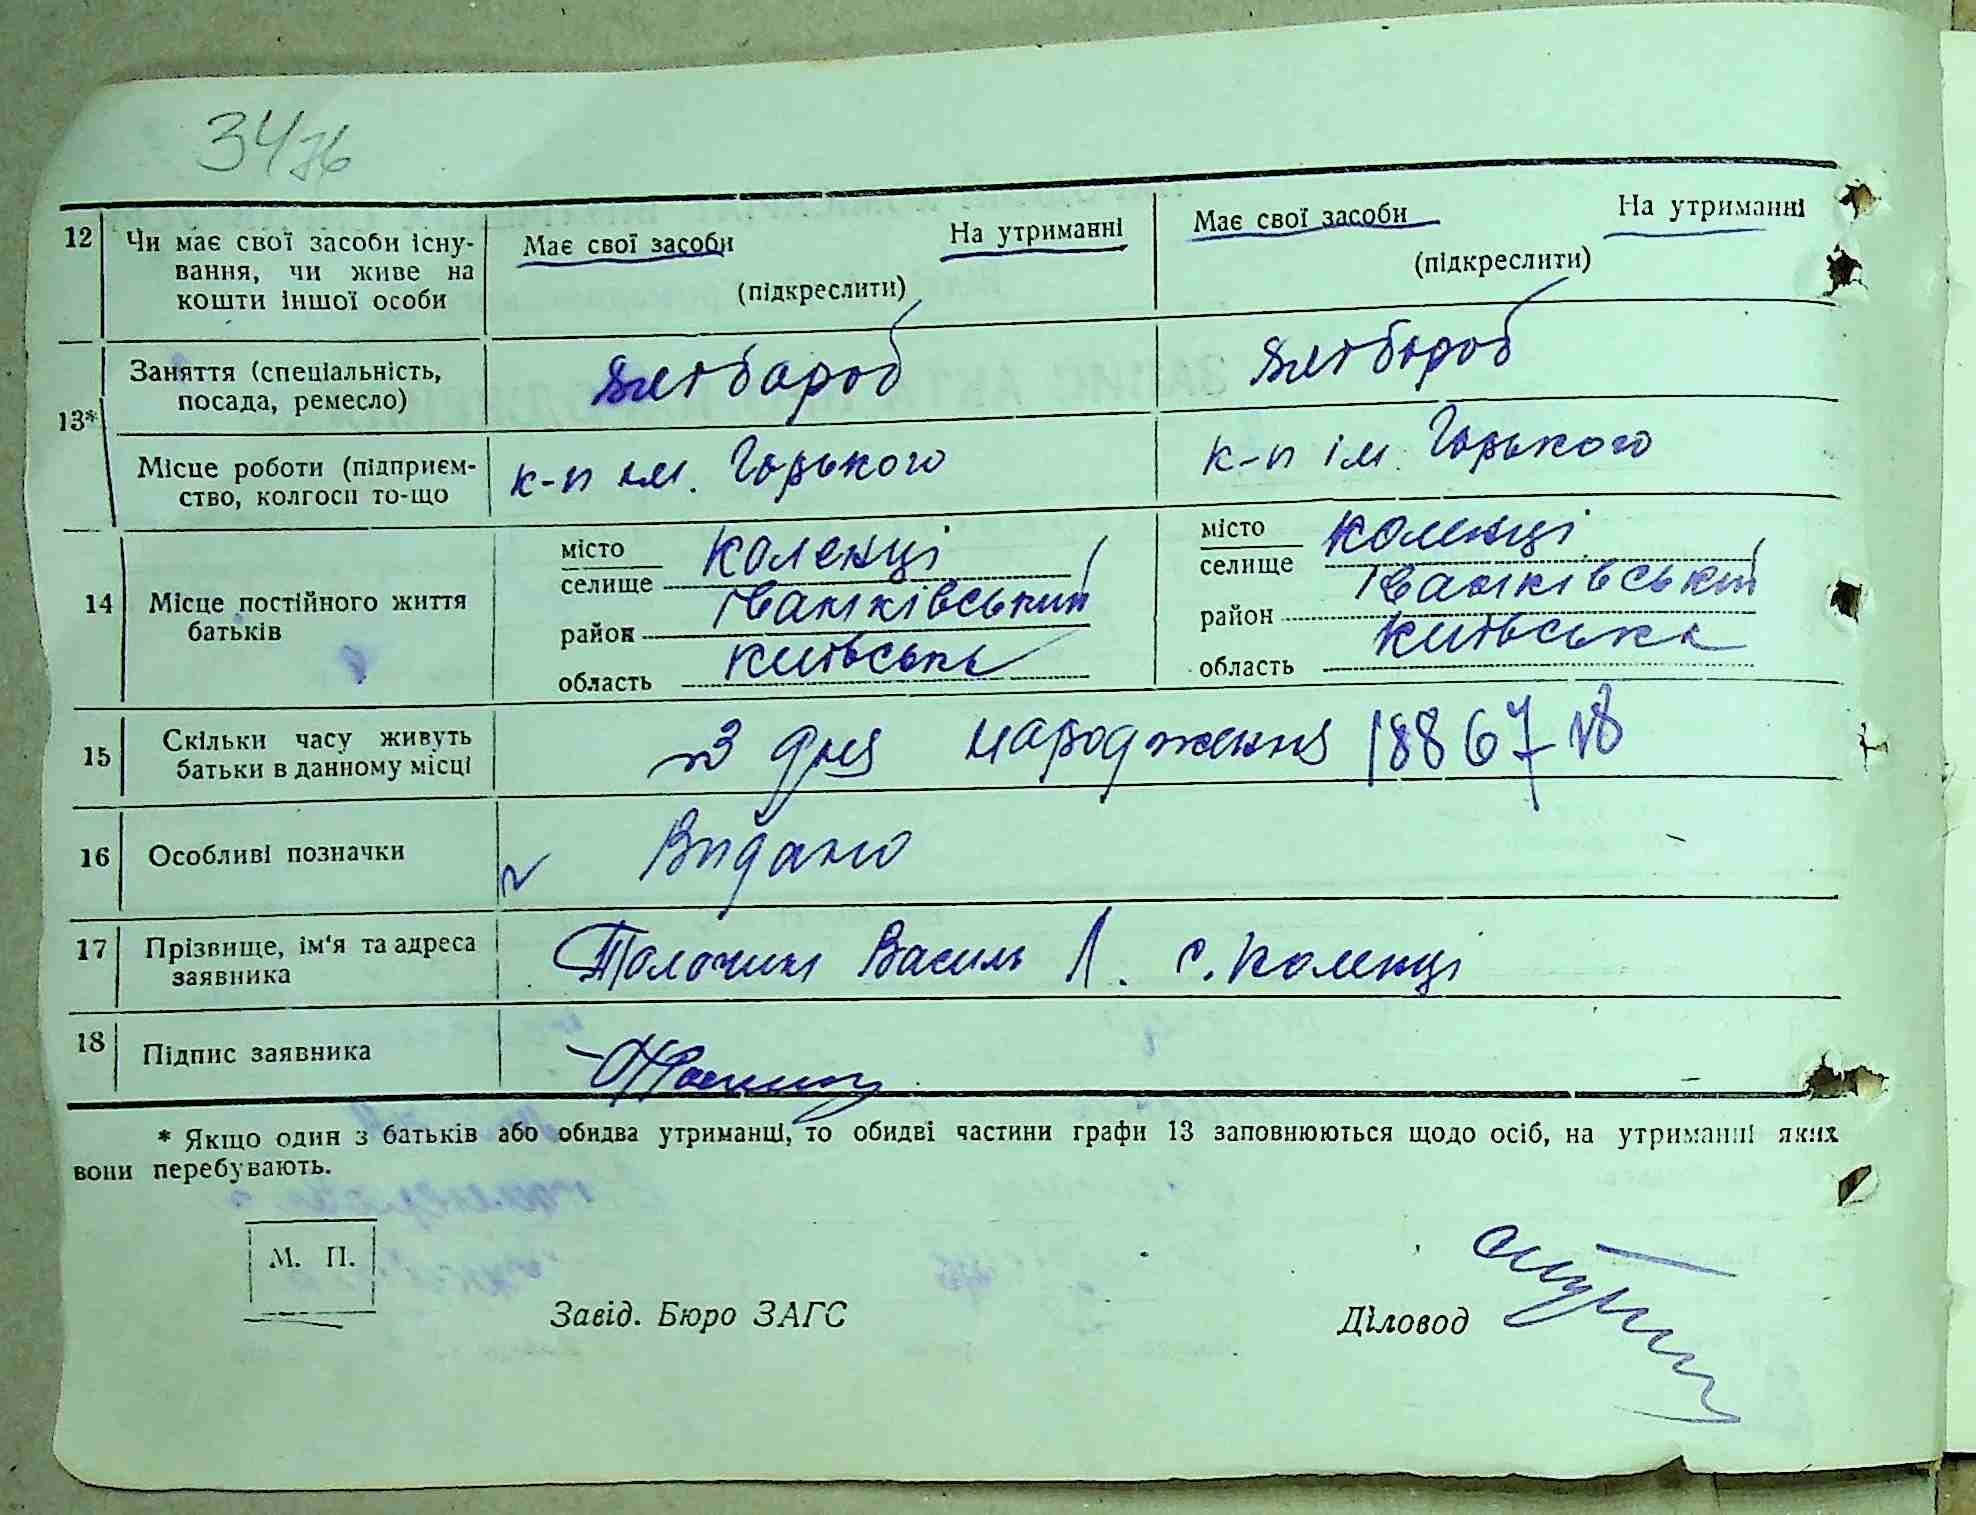 3476
12 Чи має свої засоби існу- Має свої засоби На утриманні Має свої засоби На утриманні
вання, чи живе на (підкреслити) (підкреслити)
кошти іншої особи
13* Заняття (спеціальність, хлібороб хлібороб
посада, ремесло)
Місце роботи (підприєм- к-п ім. Горького к-п ім. Горького
ство, колгосп то-що
14 Місце постійного життя
батьків
місто
селище Коленці
район Іванківський
область Київська
місто
селище Коленці
район Іванківський
область Київська
15 Скільки часу живуть з дня народження 1886 7
батьки в данному місці
16 Особливі позначки Видано
17 Прізвище, ім'я та адреса Толочин Василь Л. с. Коленці
заявника
18 Підпис заявника
* Якщо один з батьків або обидва утриманці, то обидві частини графи 13 заповнюються щодо осіб, на утриманні яких
вони перебувають.
М. П.
Завід. Бюро ЗАГС Діловод